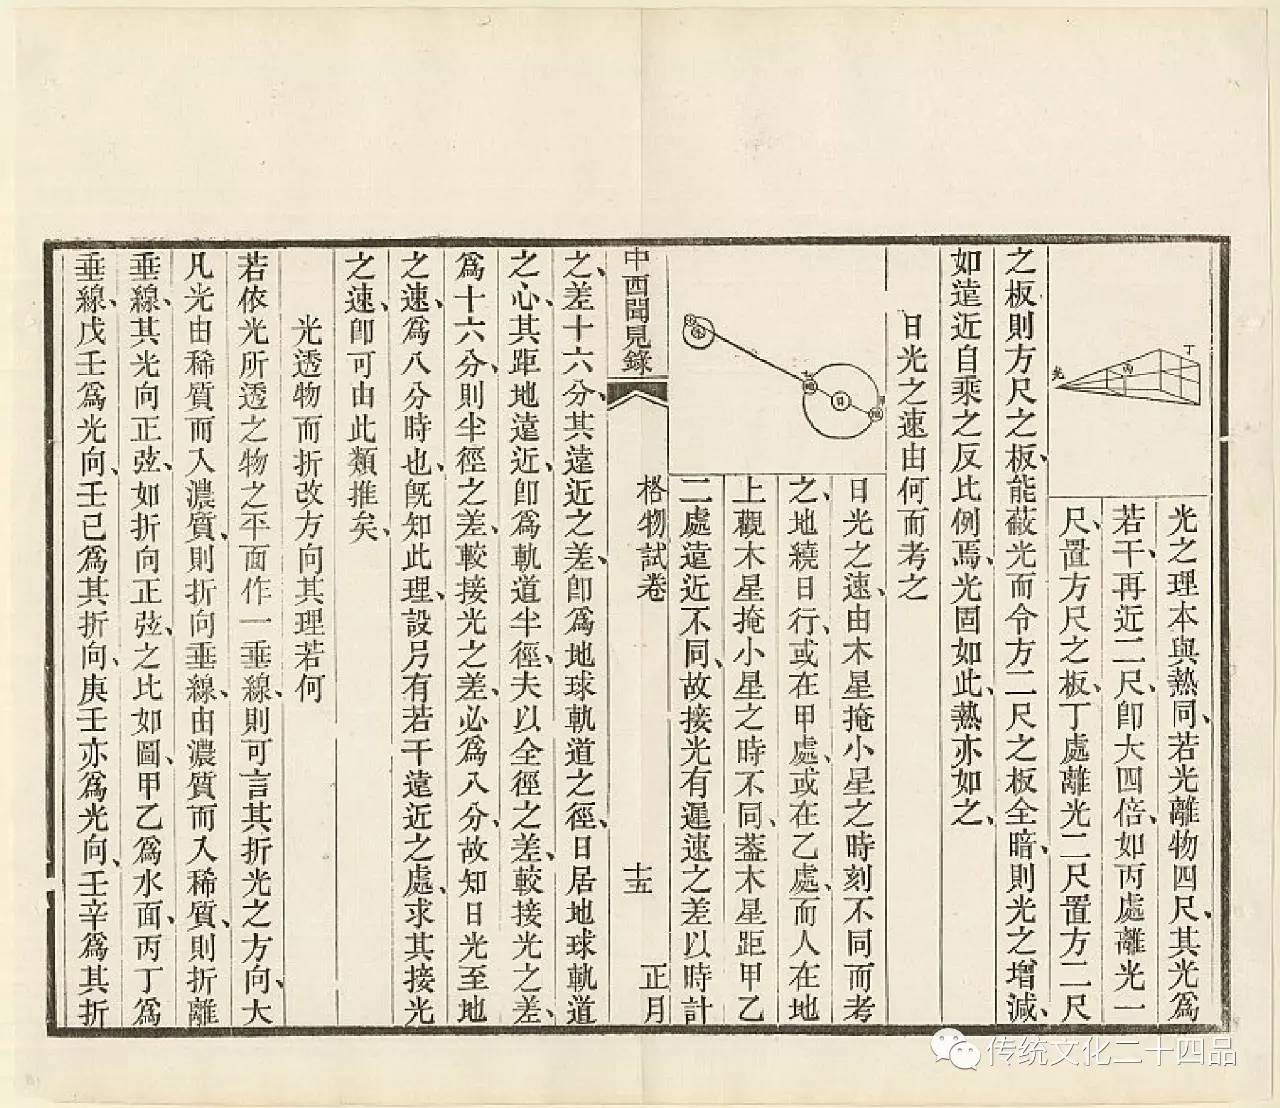 光之理本與熱同、若光離物四尺、其光爲
若干、再近二尺、卽大四倍、如丙處離光一
尺、置方尺之板、丁處離光二尺置方二尺
之板則方尺之板、能蔽光而令方二尺之板全暗、則光之增減、
如遠近自乘之反比例焉、光固如此、熱亦如之、
光
丙
丁
日光之速由何而考之
日光之速、由木星掩小星之時刻不同而考
之、地繞日行、或在甲處、或在乙處、而人在地
上觀木星掩小星之時不同、葢木星距甲乙
二處遠近不同、故接光有遲速之差以時計
日
中西聞見錄
格物試卷
十五
正月
之、差十六分、其遠近之差、卽爲地球軌道之徑、日居地球軌道
之心、其距地遠近、卽爲軌道半徑、夫以全徑之差、較接光之差、
爲十六分、則半徑之差、較接光之差、必爲八分、故知日光至地
之速、爲八分時也、旣知此理、設另有若干遠近之處、求其接光
之速、卽可由此類推矣、
光透物而折改方向其理若何
若依光所透之物之平面作一垂線、則可言其折光之方向、大
凡光由稀質而入濃質、則折向垂線、由濃質而入稀質、則折離
垂線、其光向正弦、如折向正弦、之比如圖、甲乙爲水面、丙丁爲
垂線、戊壬爲光向、壬己爲其折向、庚壬亦爲光向、壬辛爲其折
传统文化二十四品